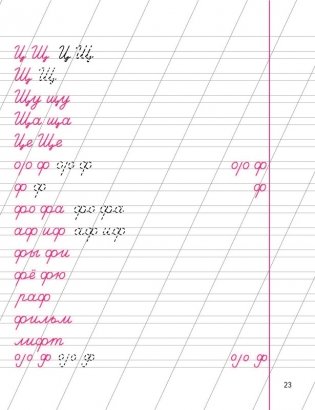 Ц Щ Ц Щ
Щ Щ
Щу щу
Ща ща
Це Ще
ф ф ф
ф ф ф
фо фа фо фа
аф иф аф иф
фы фи
фё фю
раф
фильм
лифт
ф ф ф
23